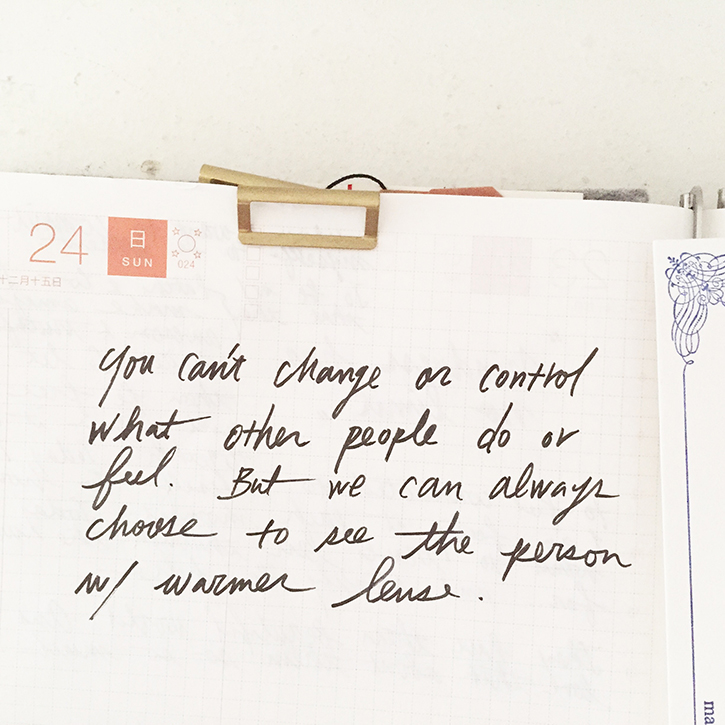 24
日
SUN
024
十二月十五日
you can't change or control
what other people do or
feel. But we can always
choose to see the person
w/ warmer lense.
ma